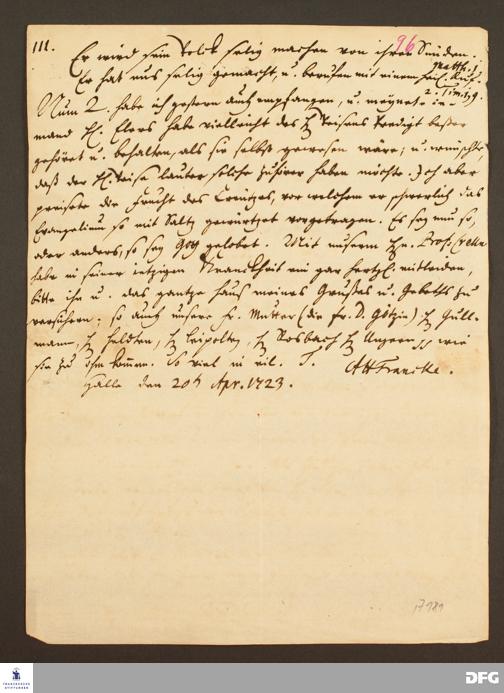 III.
96
Er wird sein Volck selig machen von ihren Sünden.
Matth. 1.
Er hat uns selig gemacht, u. beruffen mit einem heil. Ruf.
2. Tim. 1, 9.
Num 2. habe ich gestern auch empfangen, u. meynete ie-
mand H. Elers habe vielleicht des H Teisens Predigt besser
gehöret u. behalten, als sie selbst gewesen wäre; u. wünschte,
daß der H. Teise lauter solche Zuhörer haben möchte. Ich aber
preisete die Frucht des Creutzes, vor welchem er schwerlich das
Evangelium so mit Saltz gewürtzet vorgetragen. Es sey nun so,
oder anders, so sey Gott gelobet. Mit unserm Hn. Prof.
habe in seiner ietzigen Kranckheit ein gar hertzl. mitleiden,
bitte ihn u. das gantze Haus meines Grusses u. Gebeths zu
versichern; so auch unsere Fr. Mutter (die Fr. D. Götzin) H Hüll-
mann, H Heldten, H Leipolten, H Rosbach H Ungern wie
sie zu ihm kommen. So viel in eil. T. AHFrancke.
Halle den 20t Apr. 1723.
17181
FRANCKESCHE STIFTUNGEN
DFG